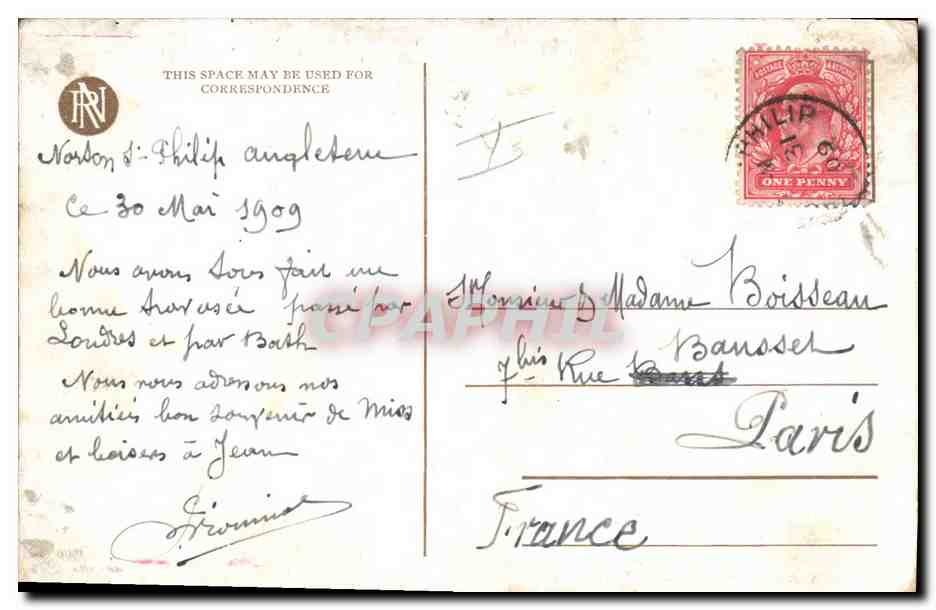 THIS SPACE MAY BE USED FOR
CORRESPONDENCE
Norton St Philip angleterre
Ce 30 Mai 1909
Nous avons tous fait une
bonne traversée passé par
Londres et par Bath
Nous vous adressons nos
amitiés bon souvenir de Miss
et baisers à Jean
POSTAGE & REVENUE
PHILIP
31
09
ONE PENNY
Monsieur & Madame Boisseau
7 bis Rue Bausset
Paris
France
CPAPHIL